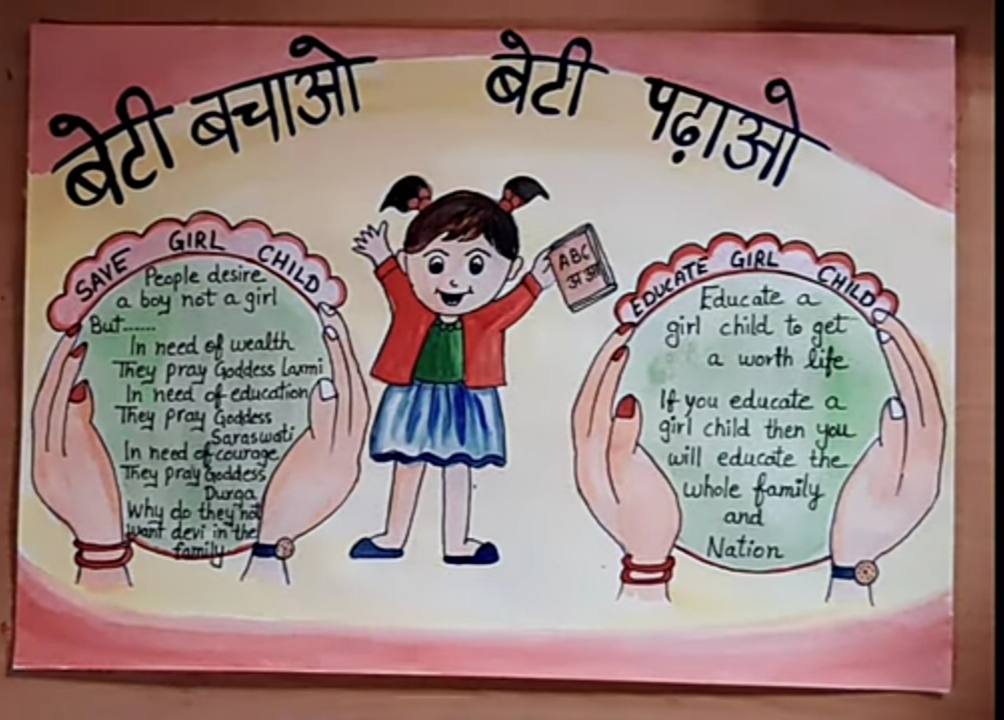 बेटी बचाओ बेटी पढ़ाओ
SAVE GIRL CHILD
People desire
a boy not a girl
But......
In need of wealth
They pray Goddess Laxmi
In need of education
They pray Goddess
Saraswati
In need of courage
They pray Goddess
Durga
Why do they not
want devi in the
family
ABC
अ आ
EDUCATE GIRL CHILD
Educate a
girl child to get
a worth life
If you educate a
girl child then you
will educate the
whole family
and
Nation